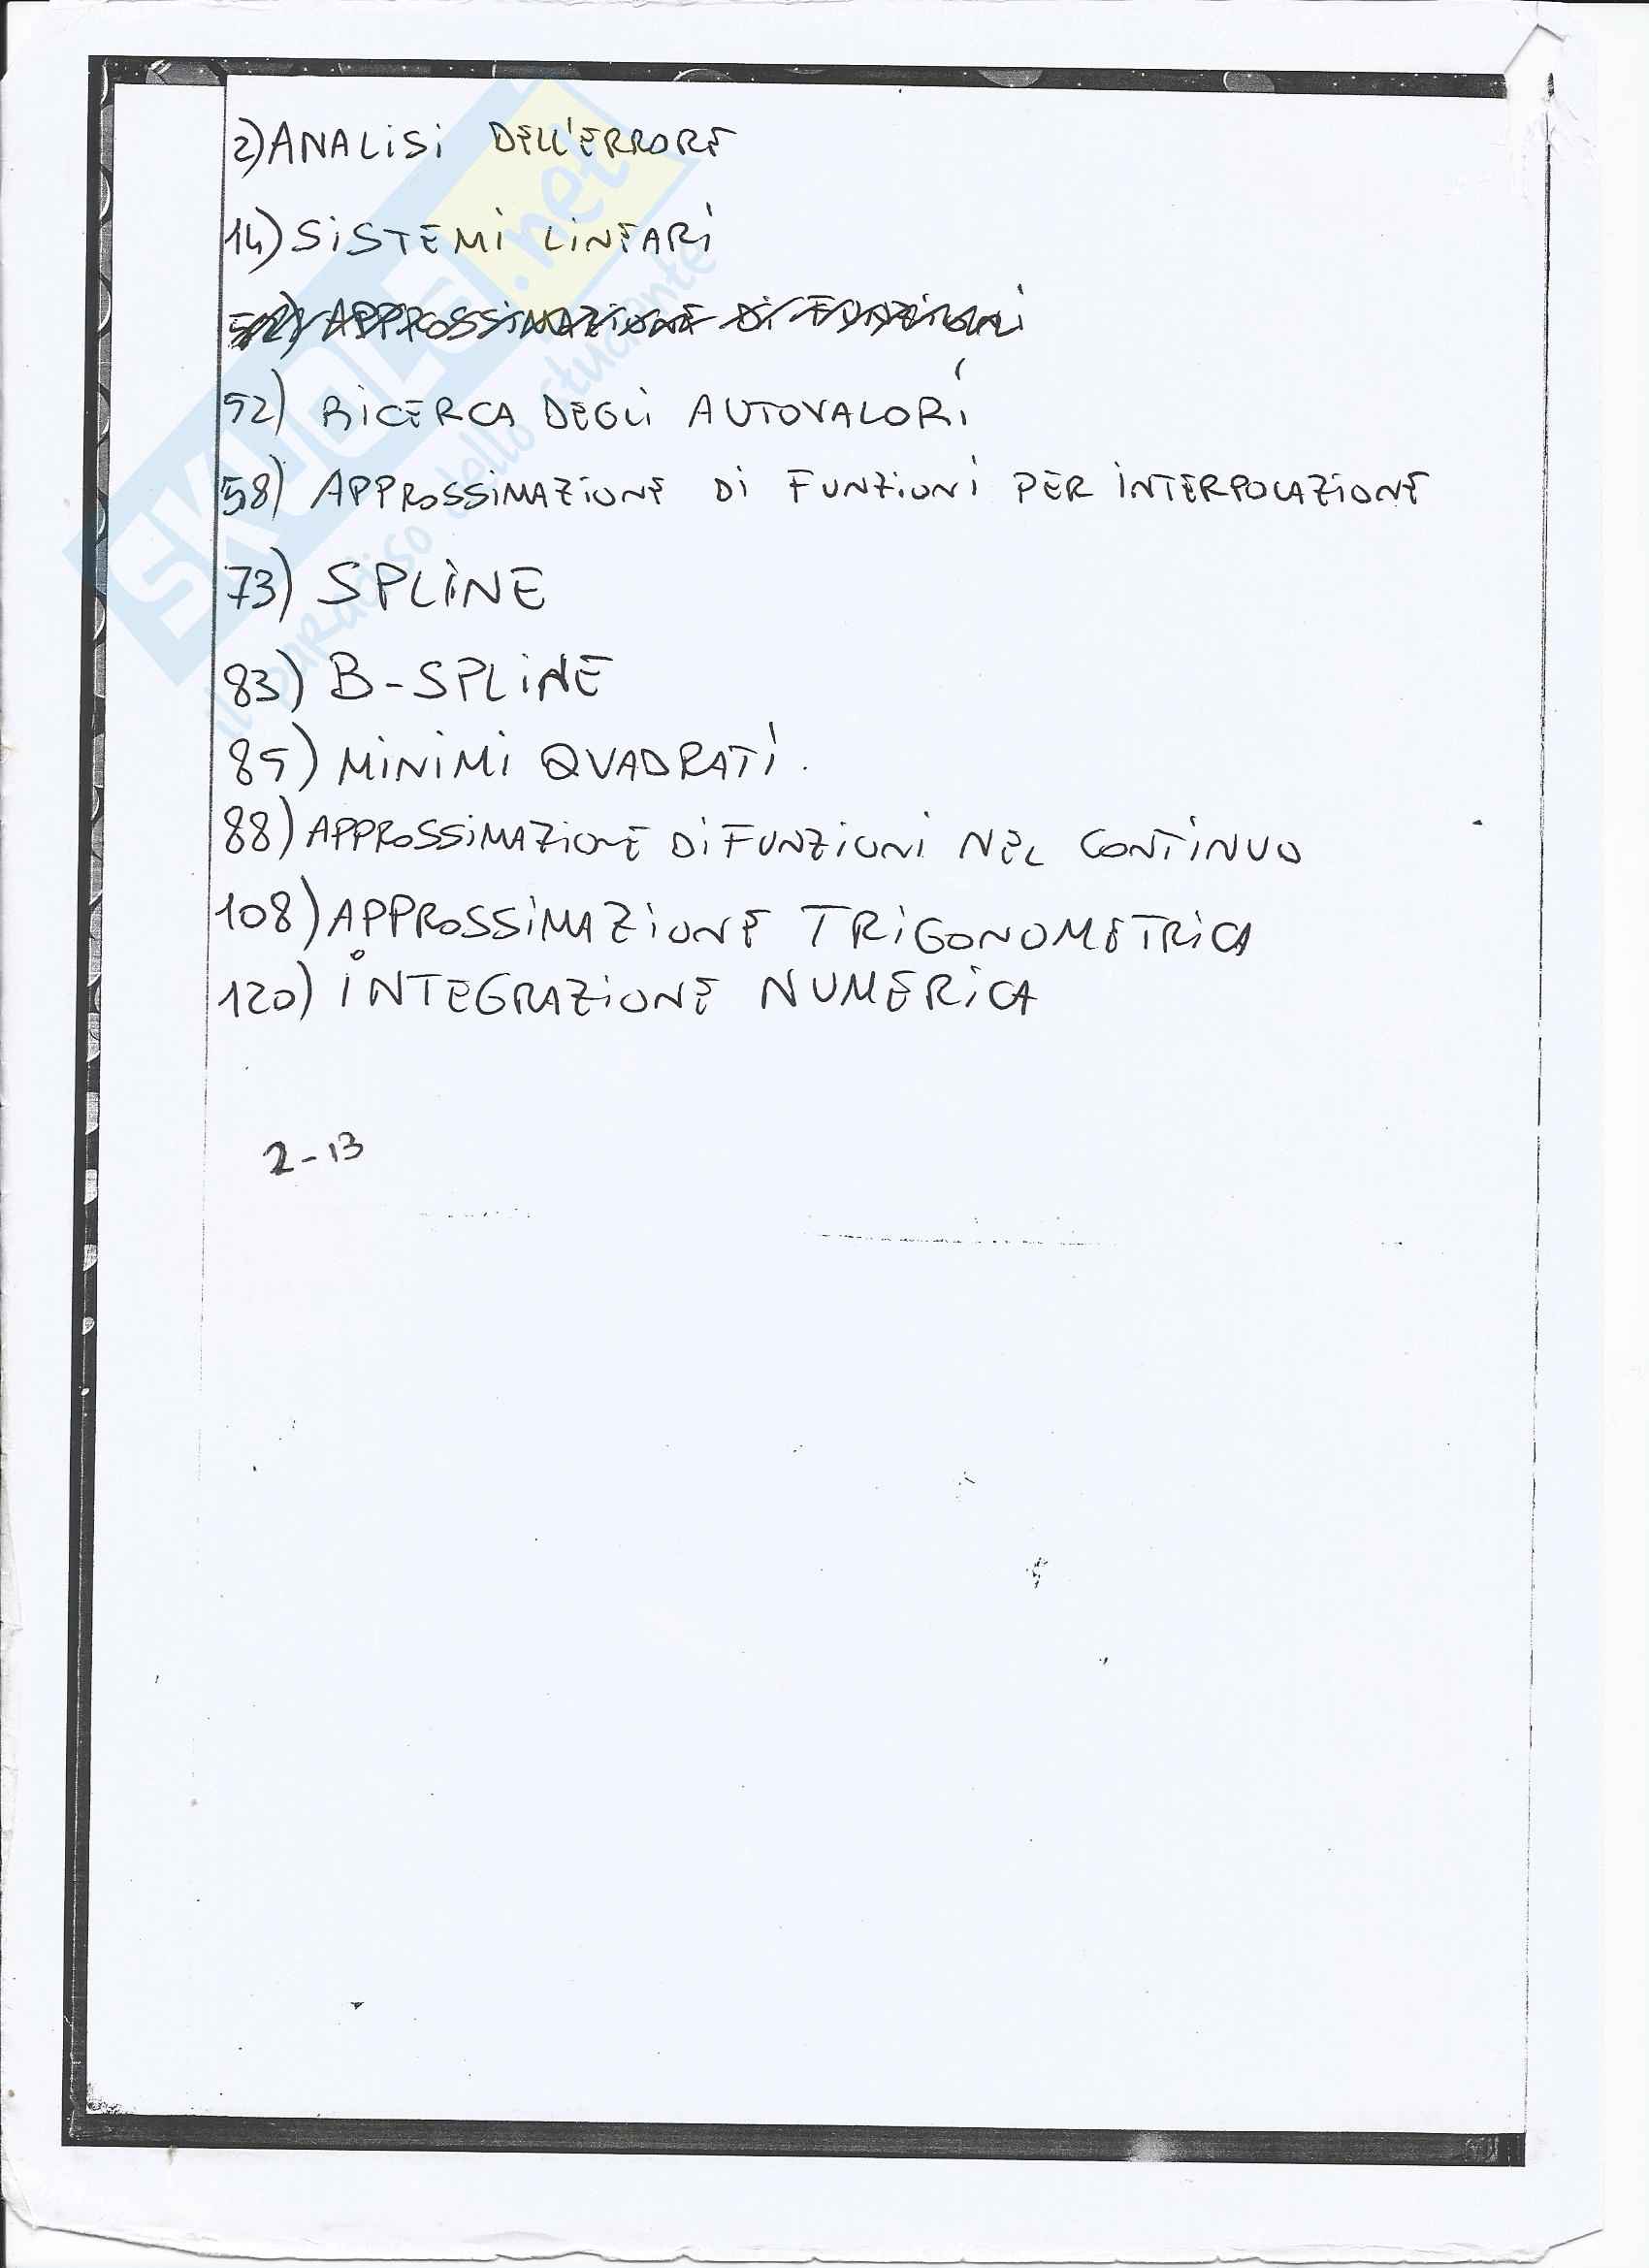 2) ANALISI DELL'ERRORE
14) SISTEMI LINEARI
52) APPROSSIMAZIONE DI FUNZIONI
52) RICERCA DEGLI AUTOVALORI
58) APPROSSIMAZIONE DI FUNZIONI PER INTERPOLAZIONE
73) SPLINE
83) B-SPLINE
85) MINIMI QUADRATI.
88) APPROSSIMAZIONE DI FUNZIONI NEL CONTINUO
108) APPROSSIMAZIONE TRIGONOMETRICA
120) INTEGRAZIONE NUMERICA
2-13
SKUOLA.net
il paradiso dello studente